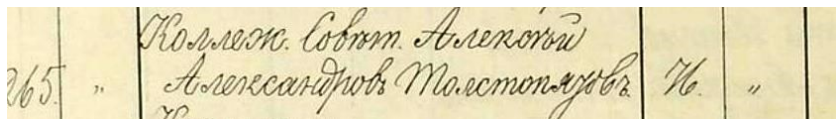 Коллеж. Совѣт. Алексѣй
265. „ Александровъ Толстопятовъ И. „